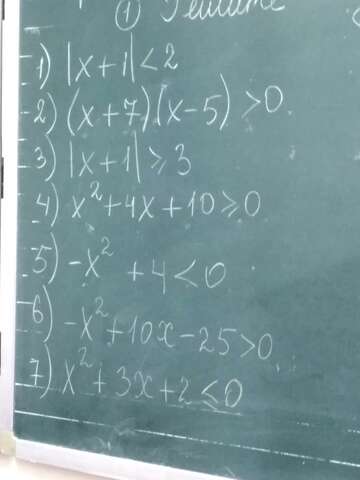 ① Решите
1) |x+1|<2
2) (x+7)(x-5)>0
3) |x+1|≥3
4) x²+4x+10≥0
5) -x²+4<0
6) -x²+10x-25>0
7) x²+3x+2≤0